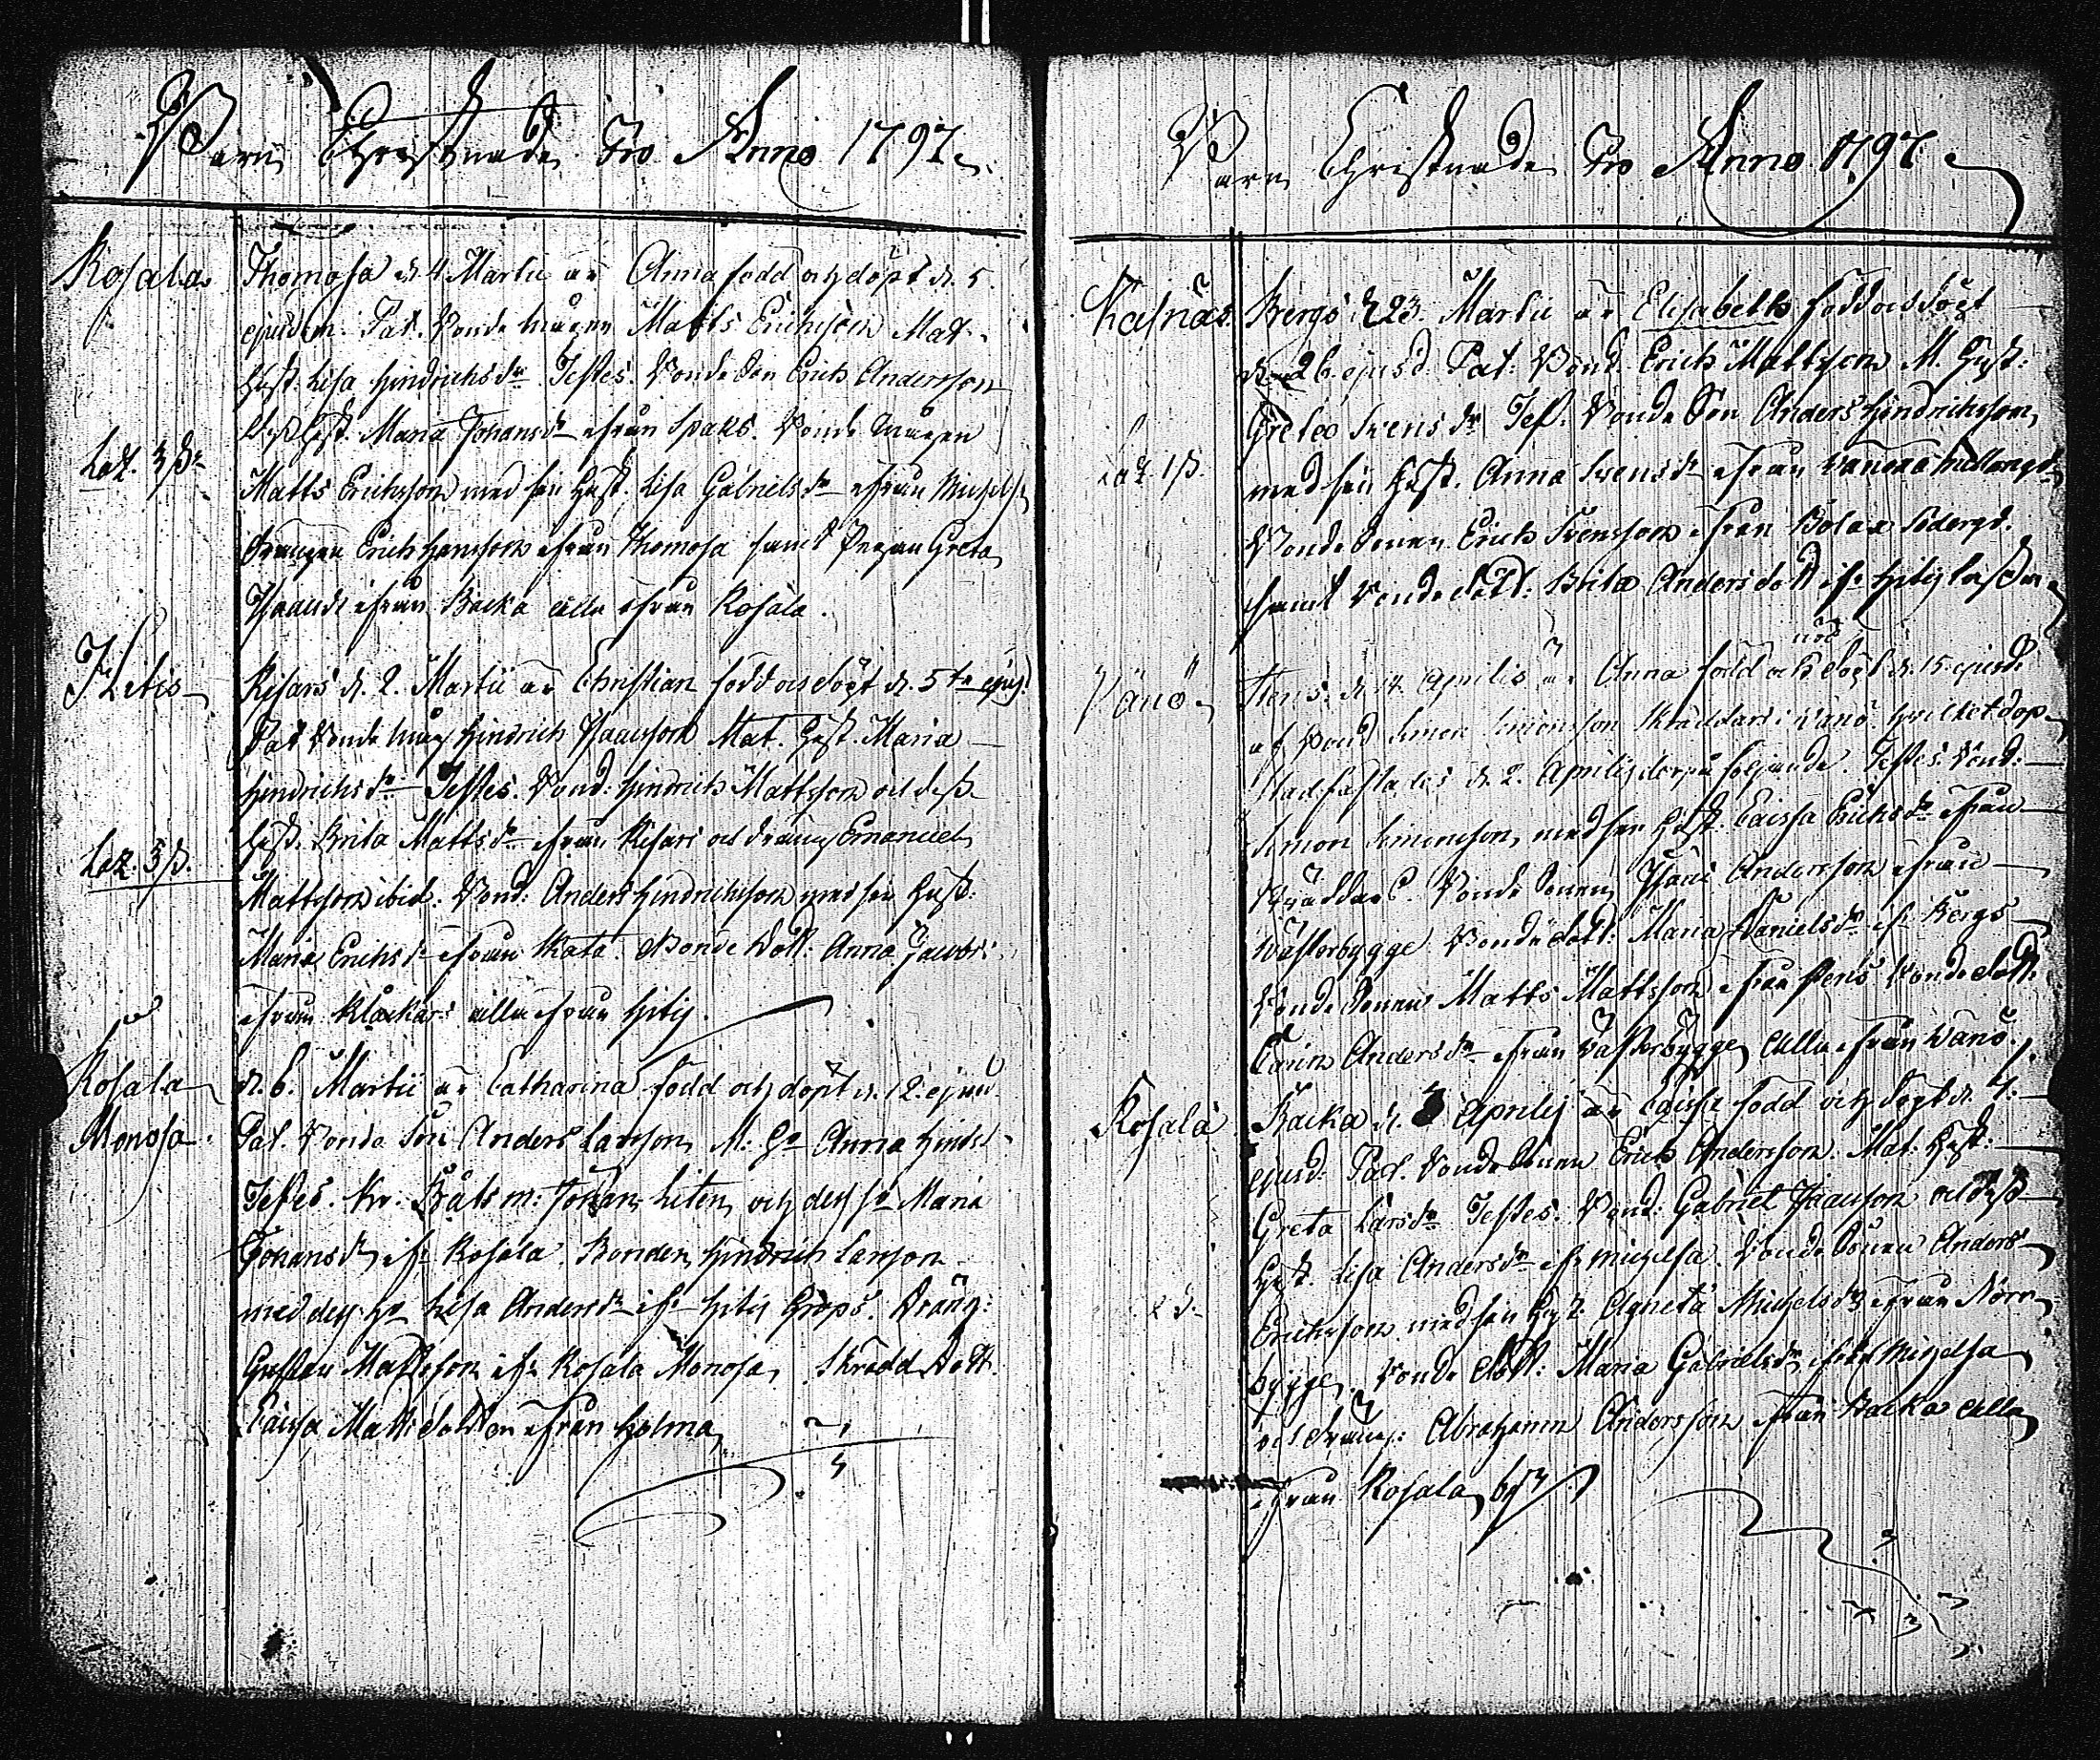 Barn Christnade Pro Anno 1797
Rosala Thomosa d. 4 Martii är Anna född och döpt d. 5
ejusdem. Pat. Bonde Mågen Matts Erichsson Mat.
Hust. Lisa Hindrichsdr Testes. Bonde Son Erich Andersson
Hust. Maria Johansdr ifrån Spaks. Bonde Mågen
Matts Erichsson med sin Hust. Lisa Gabrielsdr ifrån
Drängen Erich Hansson ifrån Thomosa samt Pigan Greta
Isaacsdr ifrån Backa alla ifrån Rosala.
Hitis Kisars d. 2. Martii är Christian född och döpt d. 5te ejusd.
Pat Bonde Måg Hindrich Isaacsson Mat. Hust. Maria
Hindrichsdr Testes. Bond. Hindrich Mattsson och dess
Hust. Brita Mattsdr ifrån Kisars och dräng Emanuel
Mattsson ibid. Bond. Anders Hindrichsson med sin Hust.
Maria Erichsdr ifrån Skata. Bonde Dott. Anna Jacobs
ifrån Klockars alla ifrån Hitis.
Rosala d. 6. Martii är Catharina född och döpt d. 12. ejusd.
Monosa Pat. Bonde Son Anders Larsson M. Hu Anna Hindsd
Testes. Kr. Båtsm. Johan Liten och dess hu Maria
Johansdr ifr Rosala. Bonden Hindrich Larsson
med dess hu Lisa Andersdr ifr Hitis Grops. Dräng.
Gustav Mattsson ifr Rosala Monosa, Skrädd. Dott.
Caisa Matts dotter ifrån Holma
Barn Christnade Pro Anno 1797
Kasnäs Bergs d. 23. Martii är Elisabeth född och döpt
d. 26. ejusd. Pat. Bond. Erich Mattsson M. Hust.
Greta Svensdr Test. Bonde Son Anders Hindrichsson
med sin Hust. Anna Svensdr ifrån
Bonde Sonen Erich Svensson ifrån Bolax Södergd.
samt Bonde dott. Brita Andersdott ifr Hitis
nöd
Vänö Stens d. 14 Aprilis är Anna född och döpt d. 15 ejusd.
af Bond Simon Simonsson Skräddars i Vänö hvilket dop
stadfästades d. 2. Aprilis derpå följande. Testes. Bond.
Simon Simonsson, med sin Hust. Caisa Erichsdr ifrån
Skräddars. Bonde Sonen Isaac Andersson ifrån
Wästerbygge. Bonde dott. Maria Danielsdr ifr Bergs
Bonde Sonen Matts Mattsson ifrån Stens Bonde dott.
Carin Andersdr ifrån Västerbygge, alla ifrån Wänö.
Rosala Backa d. 3 Aprilis är Caisa född och döpt d. 7.
ejusd. Pat. Bonde Sonen Erich Andersson. Mat. Hust.
Greta Larsdr Testes. Bond. Gabriel Isaacsson och dess
Hust. Lisa Andersdr ifr Michelsa. Bonde Sonen Anders
Erichsson med sin Agneta Michelsdr ifrån Norr
bygge. Bonde dott. Maria Gabrielsdr ifrån Michelsa
och dräng. Abraham Andersson ifrån Backa alla
ifrån Rosala by